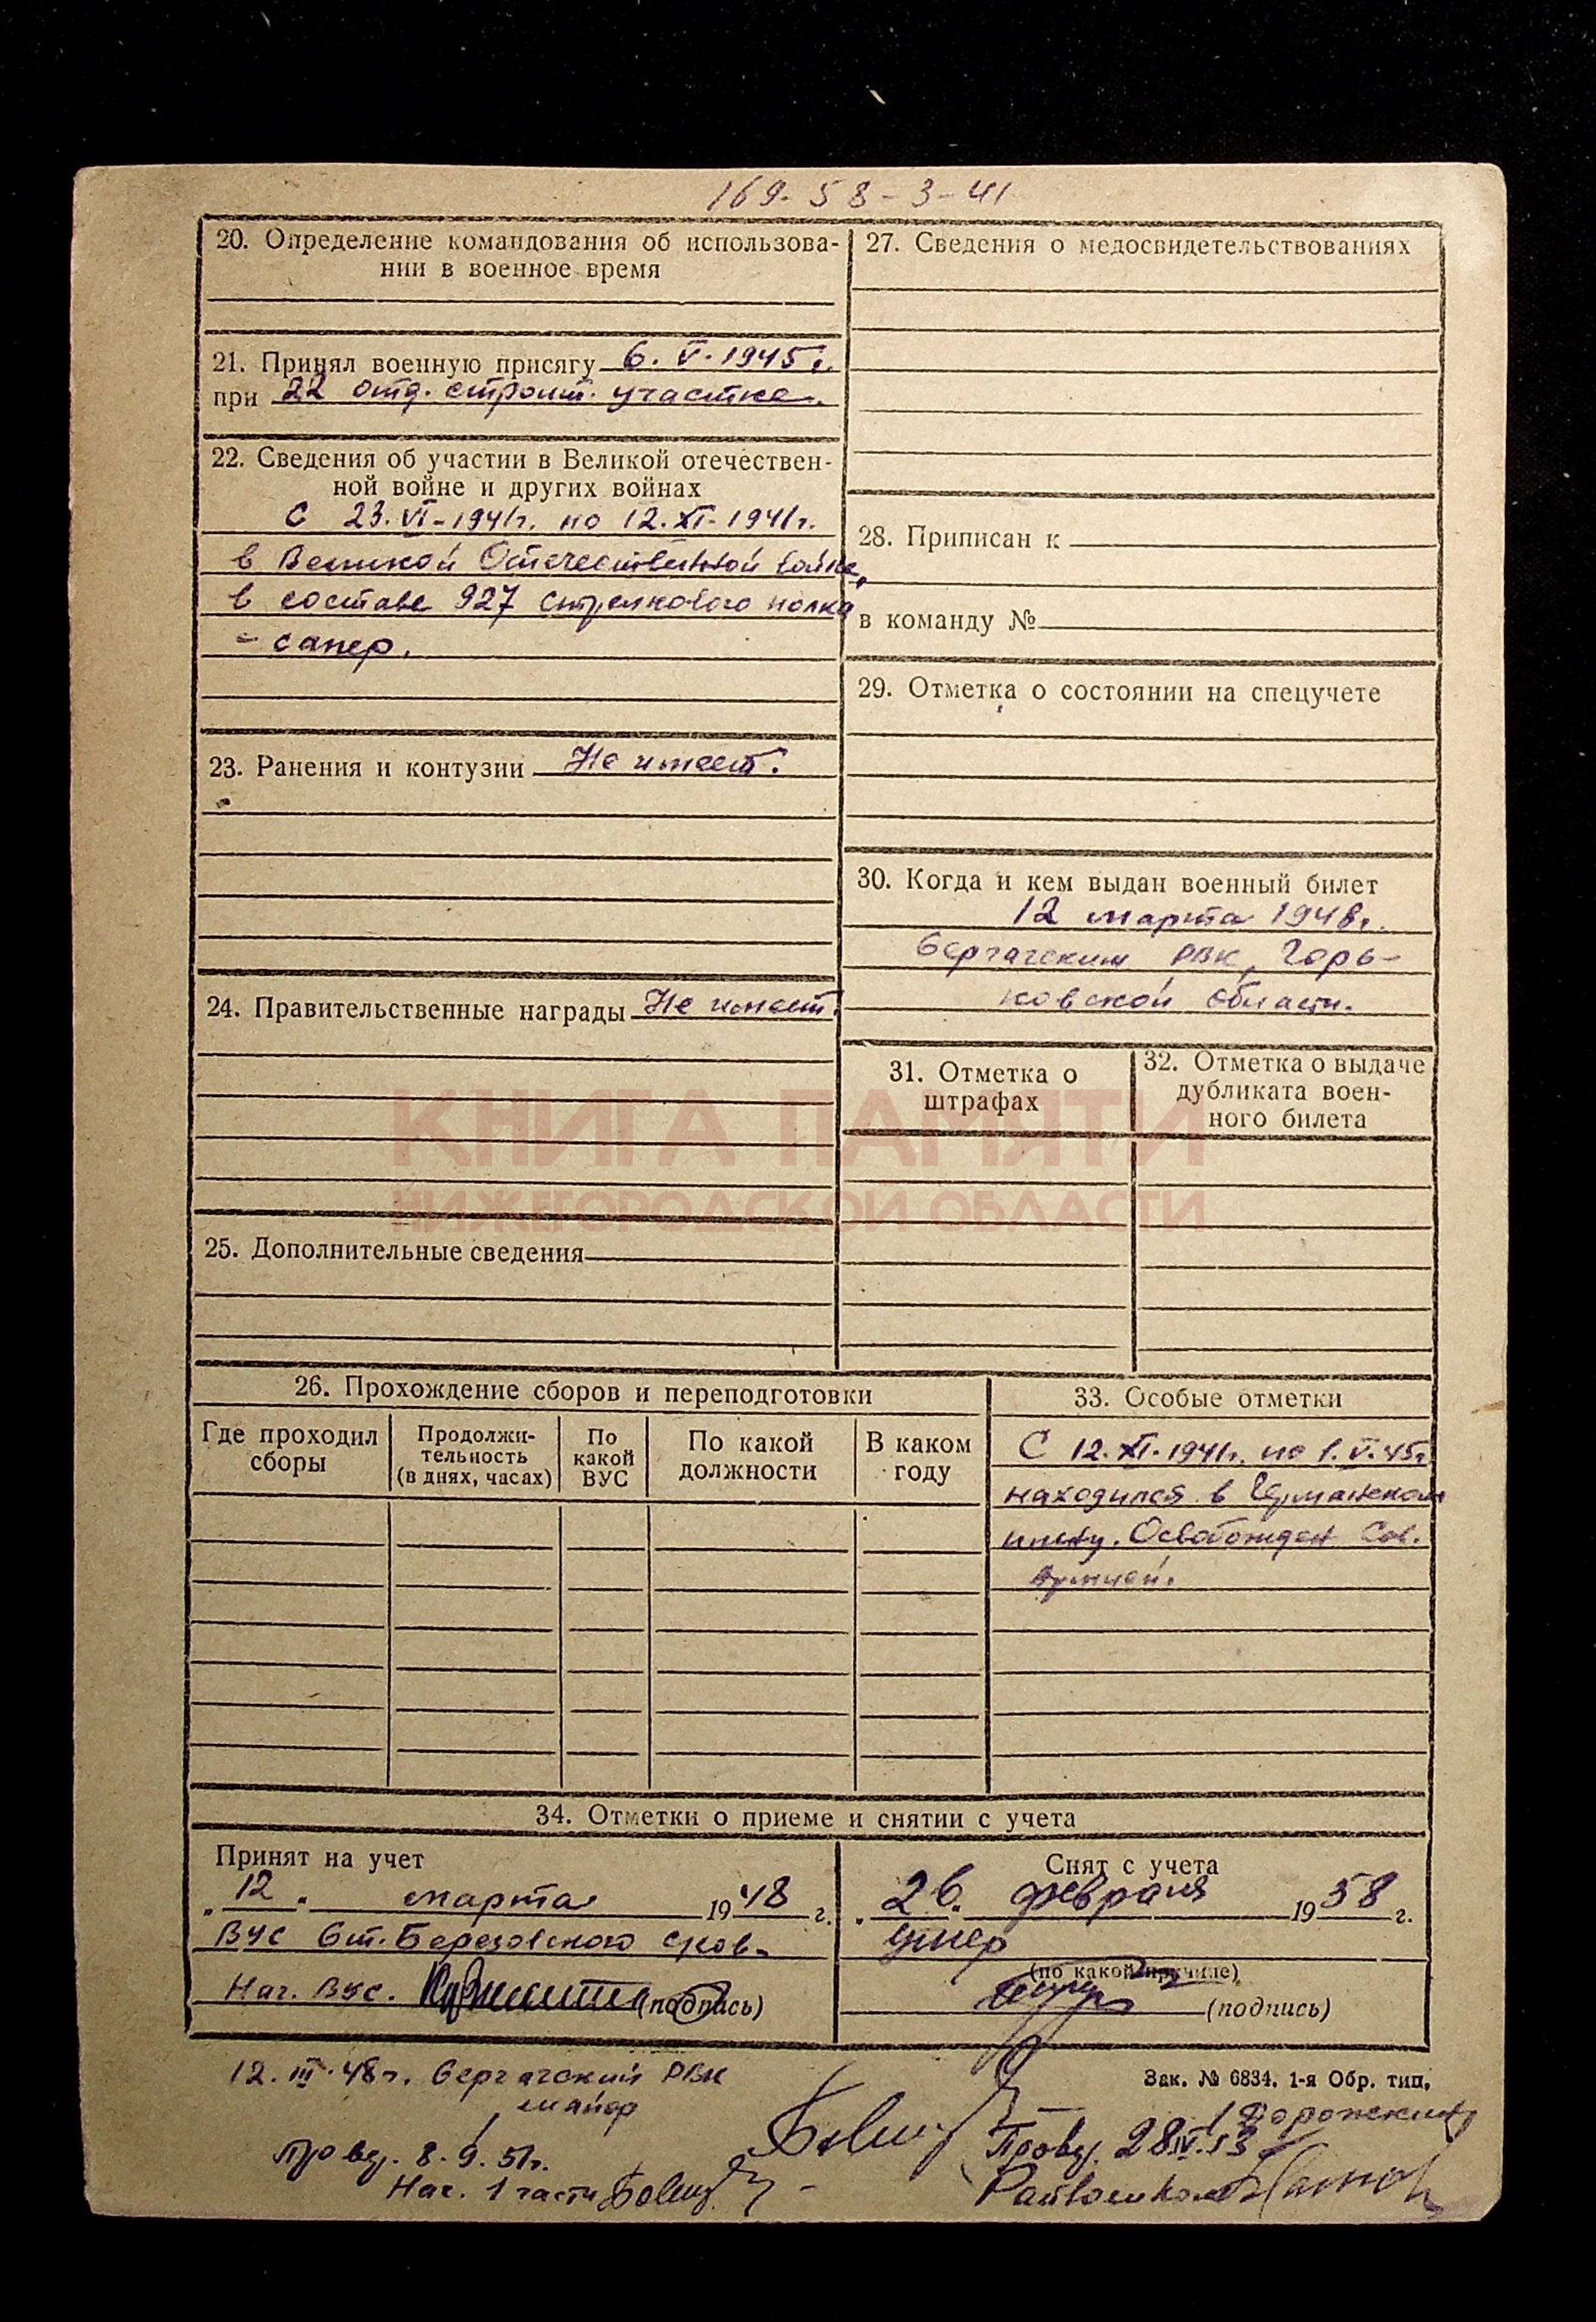 169-58-3-41
20. Определение командования об использова-
нии в военное время
21. Принял военную присягу 6. V. 1945 г.
при 22 отд. строит. участке.
22. Сведения об участии в Великой отечествен-
ной войне и других войнах
С 23.VI-1941г. по 12.XI-1941г.
в Великой Отечественной войне,
в составе 927 стрелкового полка
- сапер.
23. Ранения и контузии Не имеет.
24. Правительственные награды Не имеет.
25. Дополнительные сведения
27. Сведения о медосвидетельствованиях
28. Приписан к
в команду №
29. Отметка о состоянии на спецучете
30. Когда и кем выдан военный билет
12 марта 1948г.
Сергачским РВК, Горь-
ковской области.
31. Отметка о
штрафах
32. Отметка о выдаче
дубликата воен-
ного билета
КНИГА ПАМЯТИ
НИЖЕГОРОДСКОЙ ОБЛАСТИ
26. Прохождение сборов и переподготовки
Где проходил
сборы
Продолжи-
тельность
(в днях, часах)
По
какой
ВУС
По какой
должности
В каком
году
33. Особые отметки
С 12.XI-1941г. по 1.V.45г
находился в Германском
плену. Освобожден Сов.
Армией.
34. Отметки о приеме и снятии с учета
Принят на учет
„12" марта 1948 г.
ВУС Ст.-Березовского с/сов.
Нач. ВУС. (подпись)
Снят с учета
„26" февраля 1958 г.
умер
(по какой причине)
(подпись)
12.III.48г. Сергачский РВК
майор
Зак. № 6834. 1-я Обр. тип.
Провер. 8.9.51г.
Нач. 1 части
Провер. 28.IV.53